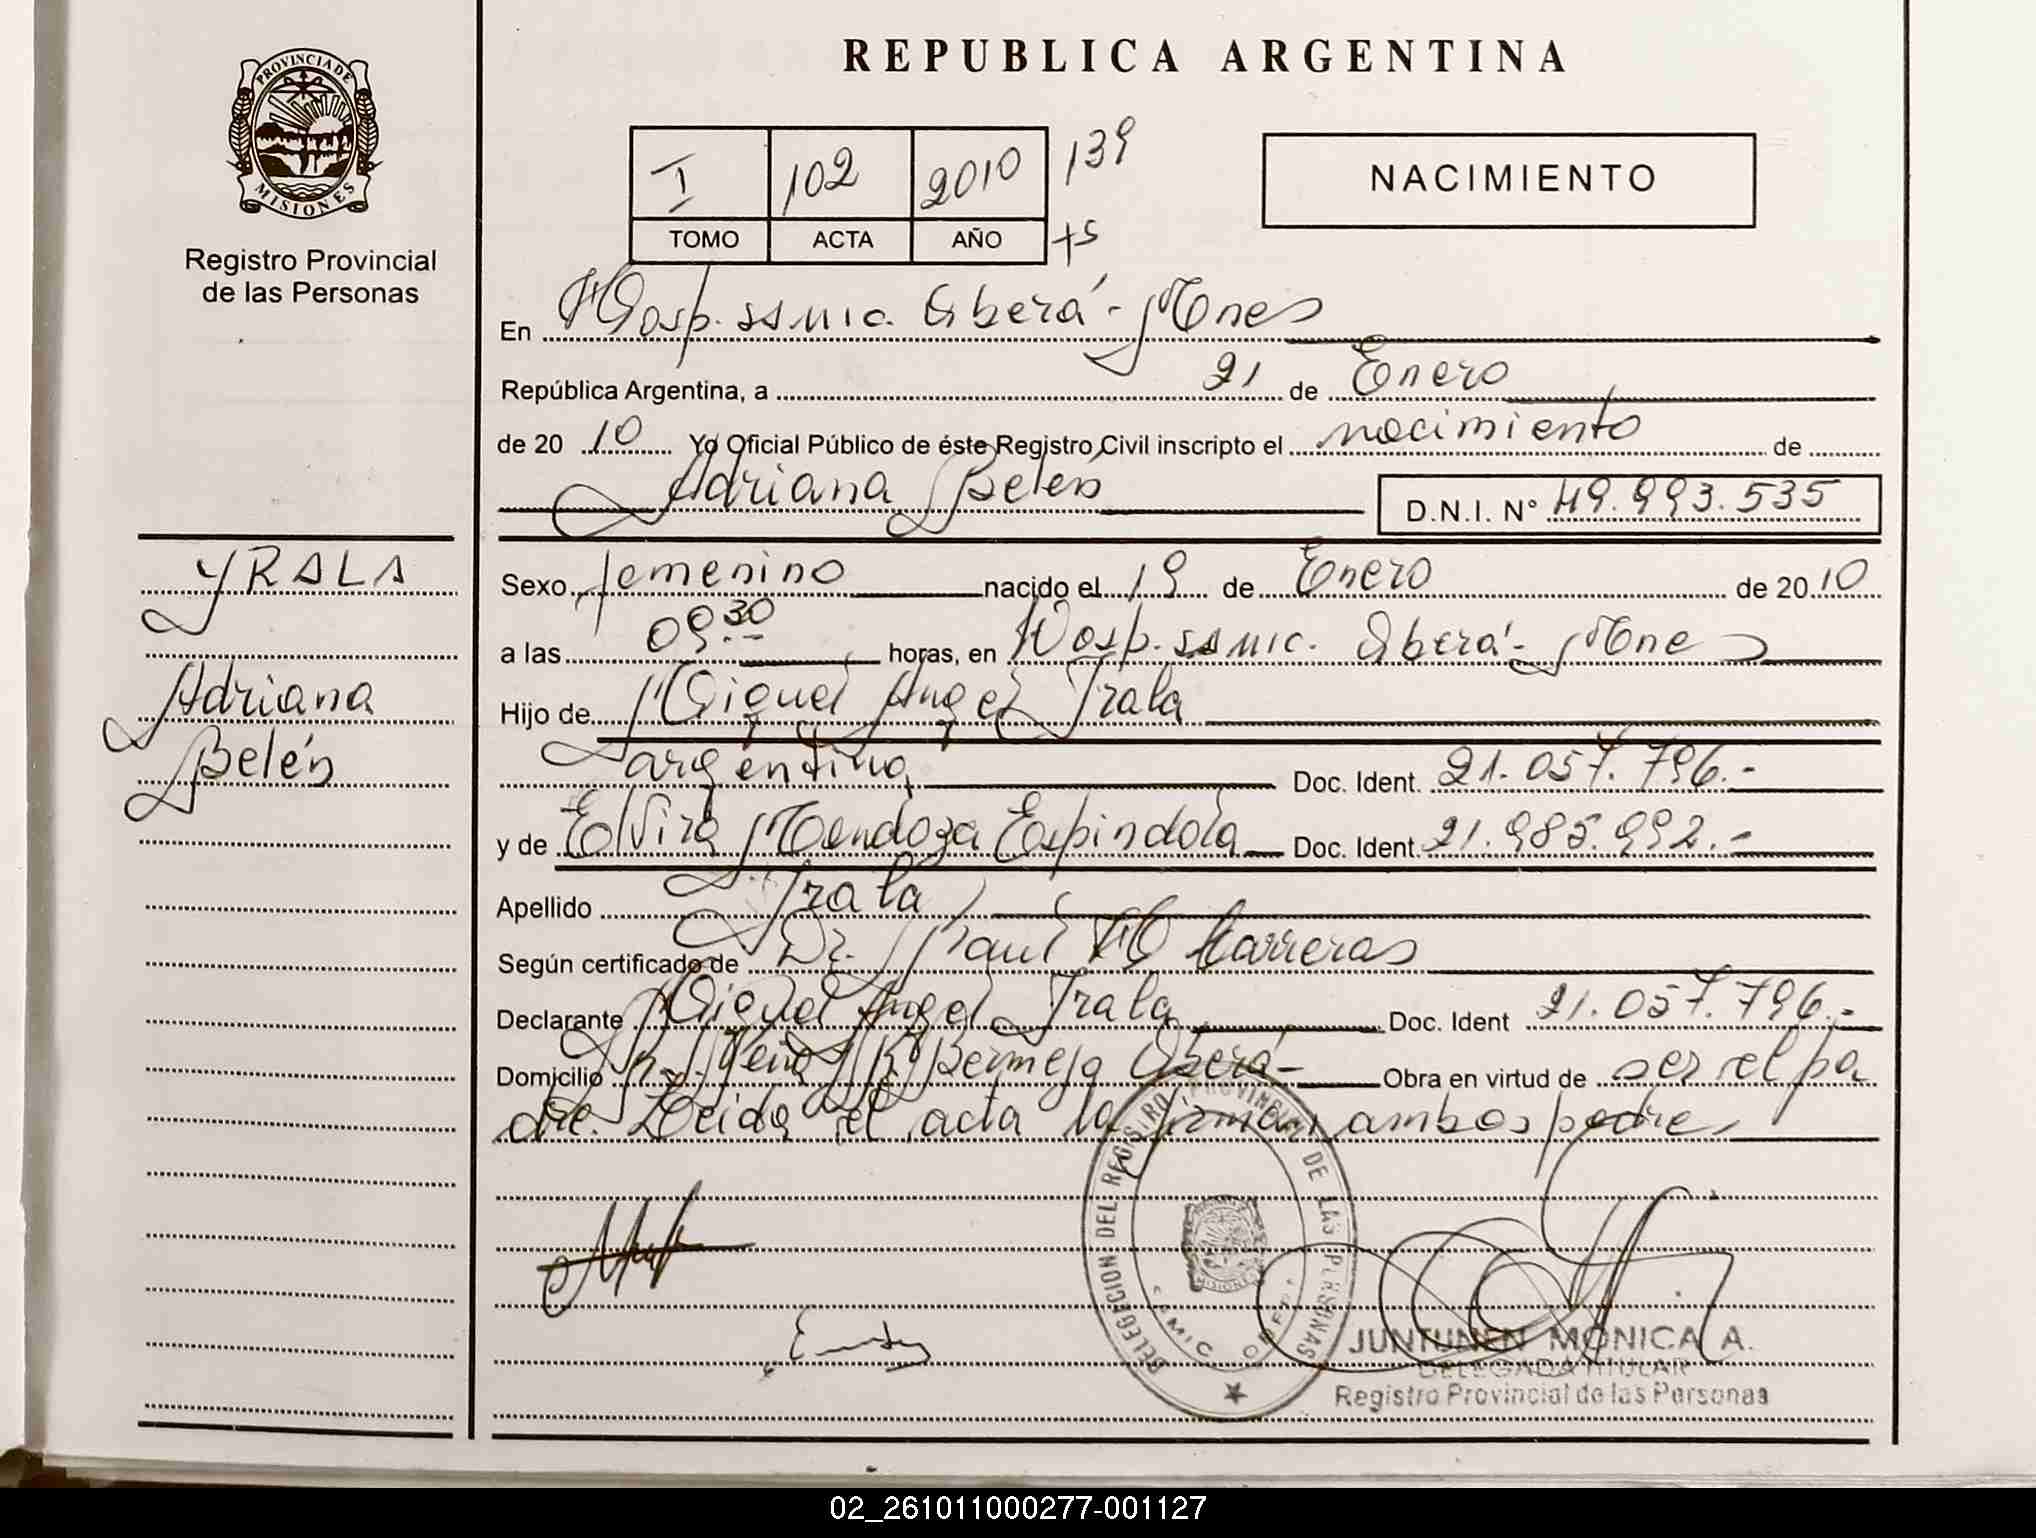 PROVINCIA DE
MISIONES
Registro Provincial
de las Personas
REPUBLICA ARGENTINA
I 102 2010 139
TOMO ACTA AÑO +5
NACIMIENTO
En Hosp. SAMIC. Oberá - Mnes
República Argentina, a 21 de Enero
de 20 10 Yo Oficial Público de éste Registro Civil inscripto el nacimiento de
Adriana Belén D.N.I. Nº 49.993.535
YRALA
Adriana
Belén
Sexo femenino nacido el 19 de Enero de 20 10
a las 09:30 horas, en Hosp. SAMIC. Oberá - Mnes
Hijo de Miguel Angel Irala
argentino Doc. Ident. 21.057.796.-
y de Elvira Mendoza Espindola Doc. Ident. 21.985.992.-
Apellido Irala
Según certificado de Dr. Raul H Carreras
Declarante Miguel Angel Irala Doc. Ident 21.057.796.-
Domicilio Bermejo Oberá - Obra en virtud de ser el pa
dre. Leida el acta la firman ambos padres
DELEGACION DEL REGISTRO PROVINCIAL DE LAS PERSONAS
SAMIC OBERA
MISIONES
JUNTUNEN MONICA A.
DELEGADA TITULAR
Registro Provincial de las Personas
02_261011000277-001127